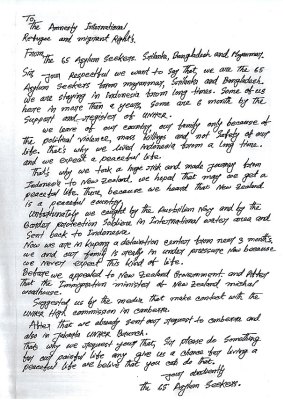 To,
The Amnesty International,
Refugee and migrant Rights.
From, The 65 Asylum Seekers Srilanka, Bangladesh and Myanmar.
Sir, your Respectful we want to say that, we are the 65
Asylum Seekers form myanmar, Srilanka and Bangladesh.
We are staying in Indonesia form long times. Some of us
here in more than 2 years, some are 6 month by the
Support and register of UNHCR.
we leave of our country, our family only because of
the political violence, mass killings and not safety of our
life, that's why we lived Indonesia form a long time.
and we expect a peaceful life.
That's why we took a huge risk and made journey form
Indonesia to New Zealand, we hoped that may we get a
peaceful life there, because we heard that New Zealand
is a peaceful country.
Unfortunately we caught by the Australian Navy and by the
Border protection in International water area and
Sent back to Indonesia.
Now we are in kupang a detention center form near 3 months,
we and our family is really in under pressure now because
we never expect this kind of life.
Before we appealed to New Zealand Government and After
that the Immigration minister of New Zealand michal
woodhouse.
Suggested us by the media that make contact with the
UNHCR High commission in canberra.
After that we already sent our request to canberra and
also in Jakarta UNHCR Branch.
That's why we request your that, Sir please do something
for our painful life any give us a chance for living a
peaceful life we believe that you can do that.
your obediently
The 65 Asylum Seekers.